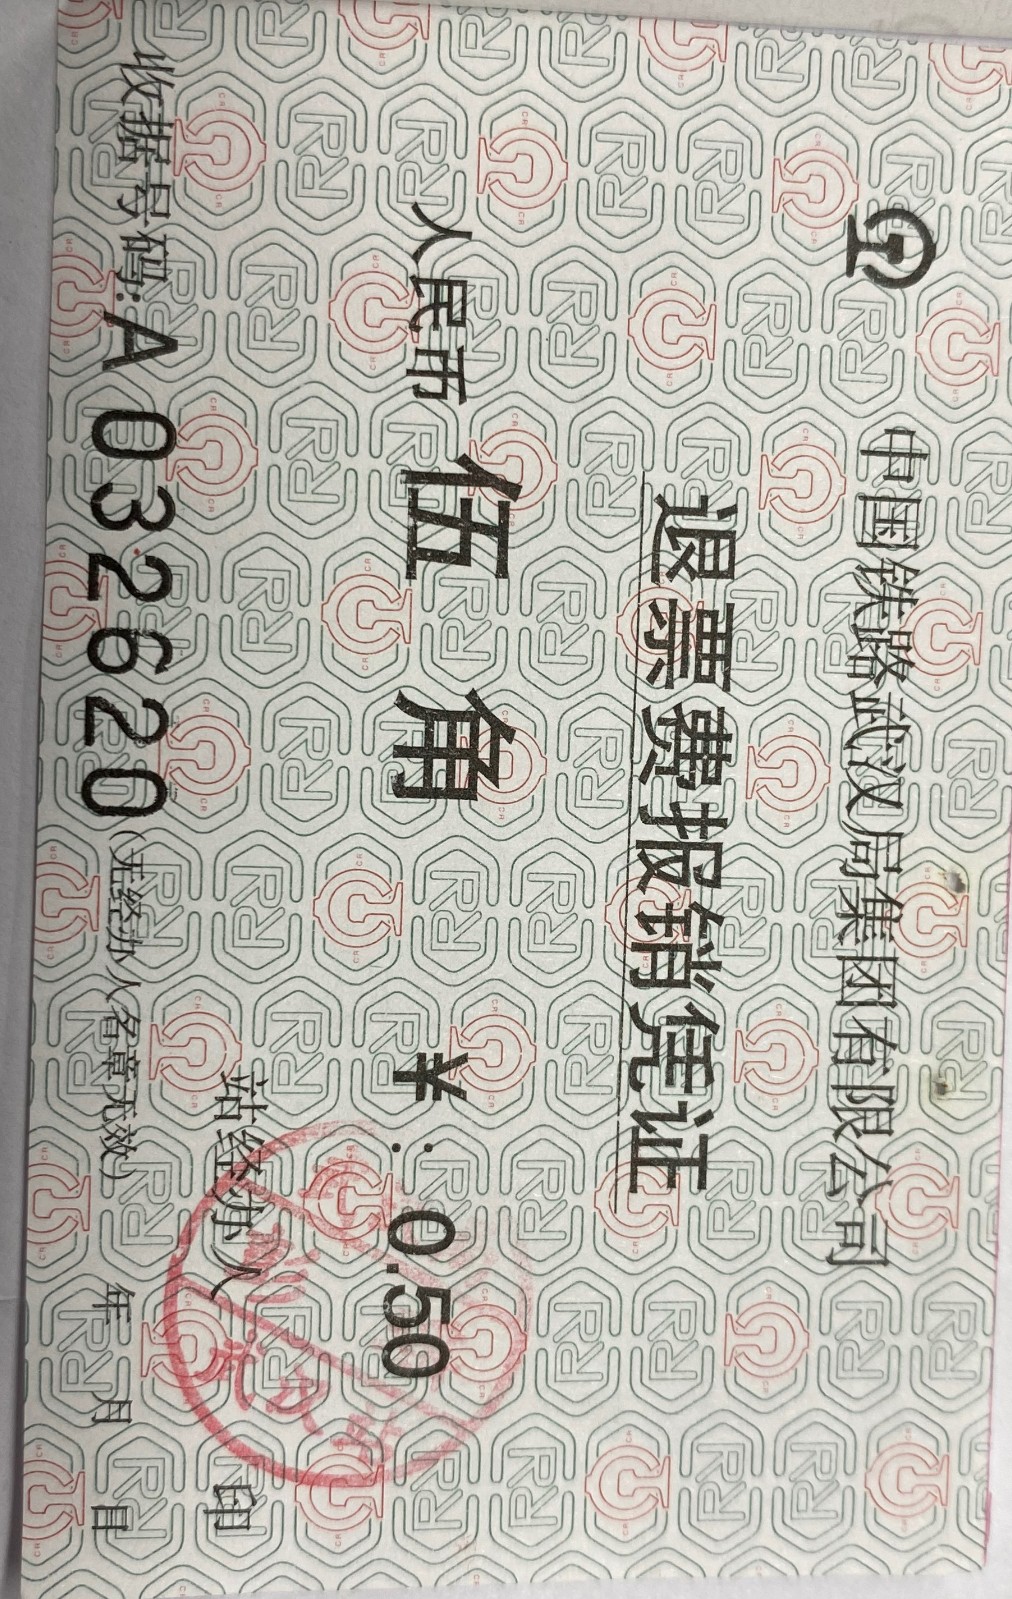 中国铁路武汉局集团有限公司
退票费报销凭证
人民币 伍角 ¥:0.50
站经办人 印
收据号码:A032620(无经办人名章无效) 年 月 日